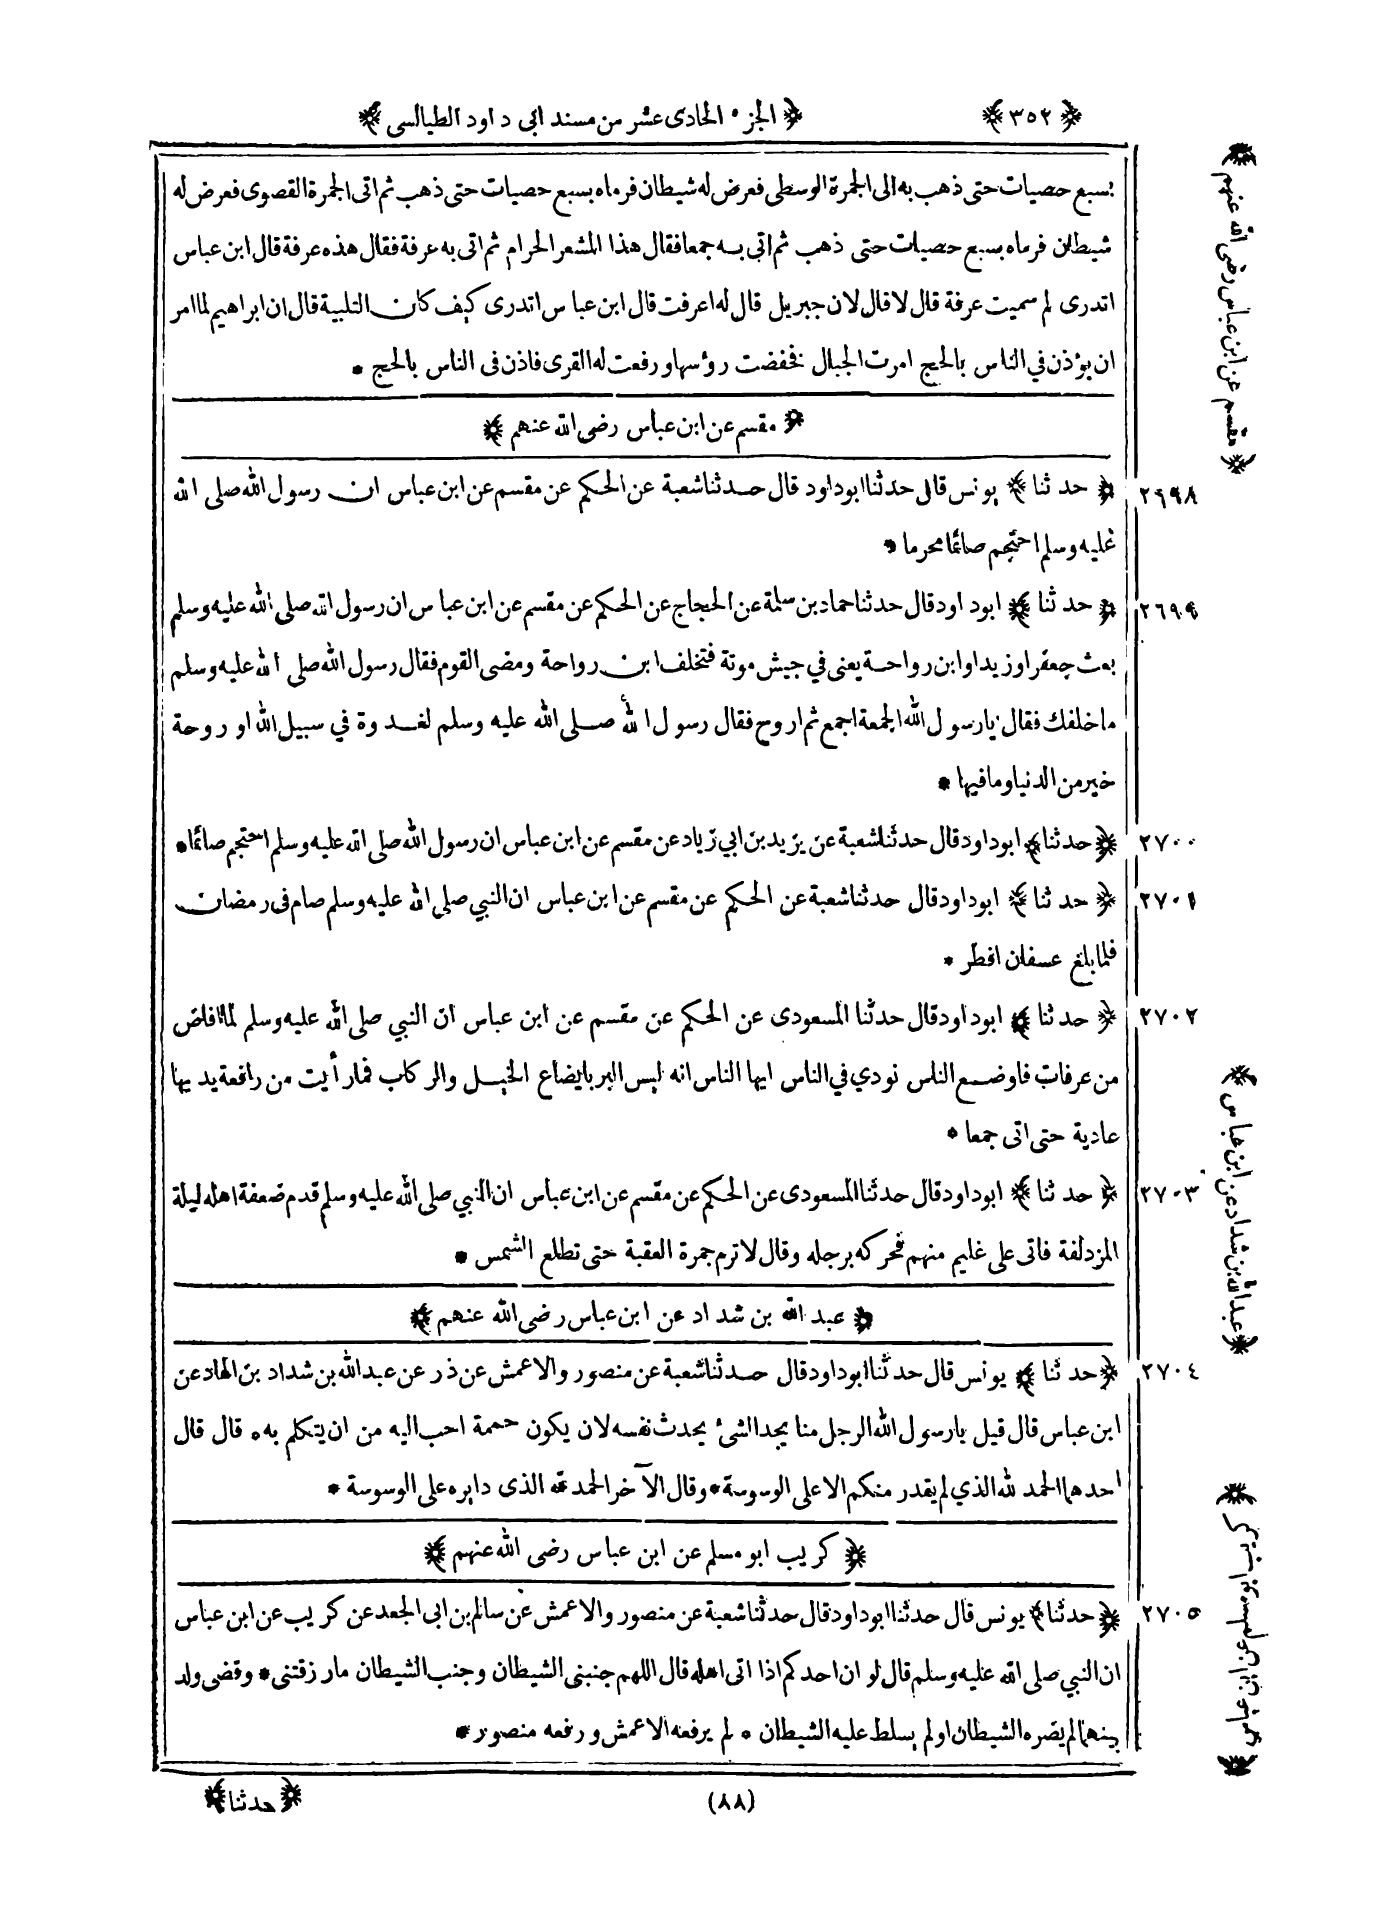 ﴿ ٣٥٢ ﴾
﴿ الجزء الحادى عشر من مسند ابى داود الطيالسى ﴾
بسبع حصيات حتى ذهب به الى الجمرة الوسطى فعرض له شيطان فرماه بسبع حصيات حتى ذهب ثم اتى الجمرة القصوى فعرض له
شيطان فرماه بسبع حصيات حتى ذهب ثم اتى به جمعا فقال هذا المشعر الحرام ثم اتى به عرفة فقال هذه عرفة قال ابن عباس
اتدرى لم سميت عرفة قال لا قال لان جبريل قال له اعرفت قال ابن عباس اتدرى كيف كان التلبية قال ان ابراهيم لما امر
ان يؤذن في الناس بالحج امرت الجبال فخفضت رؤسها ورفعت له القرى فاذن فى الناس بالحج *
﴿ مقسم عن ابن عباس رضى الله عنهم ﴾
٢٦٩٨ ﴿ حدثنا ﴾ يونس قال حدثنا ابوداود قال حدثنا شعبة عن الحكم عن مقسم عن ابن عباس ان رسول الله صلى الله
عليه وسلم احتجم صائما محرما *
٢٦٩٩ ﴿ حدثنا ﴾ ابوداود قال حدثنا حماد بن سلمة عن الحجاج عن الحكم عن مقسم عن ابن عباس ان رسول الله صلى الله عليه وسلم
بعث جعفرا وزيدا وابن رواحة يعنى في جيش موتة فتخلف ابن رواحة ومضى القوم فقال رسول الله صلى الله عليه وسلم
ما خلفك فقال يا رسول الله الجمعة اجمع ثم اروح فقال رسول الله صلى الله عليه وسلم لغدوة في سبيل الله او روحة
خير من الدنيا وما فيها *
٢٧٠٠ ﴿ حدثنا ﴾ ابوداود قال حدثنا شعبة عن يزيد بن ابي زياد عن مقسم عن ابن عباس ان رسول الله صلى الله عليه وسلم احتجم صائما *
٢٧٠١ ﴿ حدثنا ﴾ ابوداود قال حدثنا شعبة عن الحكم عن مقسم عن ابن عباس ان النبي صلى الله عليه وسلم صام فى رمضان
فلما بلغ عسفان افطر *
٢٧٠٢ ﴿ حدثنا ﴾ ابوداود قال حدثنا المسعودى عن الحكم عن مقسم عن ابن عباس ان النبي صلى الله عليه وسلم لما افاض
من عرفات فاوضع الناس نودي في الناس ايها الناس انه ليس البر بايضاع الخيل والركاب فما رأيت من رافعة يديها
عادية حتى اتى جمعا *
٢٧٠٣ ﴿ حدثنا ﴾ ابوداود قال حدثنا المسعودى عن الحكم عن مقسم عن ابن عباس ان النبي صلى الله عليه وسلم قدم ضعفة اهله ليلة
المزدلفة فاتى على غليم منهم فحركه برجله وقال لا ترم جمرة العقبة حتى تطلع الشمس *
﴿ عبد الله بن شداد عن ابن عباس رضى الله عنهم ﴾
٢٧٠٤ ﴿ حدثنا ﴾ يونس قال حدثنا ابوداود قال حدثنا شعبة عن منصور والاعمش عن ذر عن عبد الله بن شداد بن الهاد عن
ابن عباس قال قيل يا رسول الله الرجل منا يجد الشئ يحدث نفسه لان يكون حممة احب اليه من ان يتكلم به * قال قال
احدهما الحمد لله الذي لم يقدر منكم الا على الوسوسة * وقال الآخر الحمد لله الذى دابره على الوسوسة *
﴿ كريب ابو مسلم عن ابن عباس رضى الله عنهم ﴾
٢٧٠٥ ﴿ حدثنا ﴾ يونس قال حدثنا ابوداود قال حدثنا شعبة عن منصور والاعمش عن سالم بن ابى الجعد عن كريب عن ابن عباس
ان النبي صلى الله عليه وسلم قال لو ان احدكم اذا اتى اهله قال اللهم جنبنى الشيطان وجنب الشيطان ما رزقتنى * وقضى ولد
بينهما لم يضره الشيطان او لم يسلط عليه الشيطان * لم يرفعه الاعمش ورفعه منصور *
﴿ مقسم عن ابن عباس رضى الله عنهم ﴾
﴿ عبدالله بن شداد عن ابن عباس ﴾
(٨٨)
﴿ حدثنا ﴾